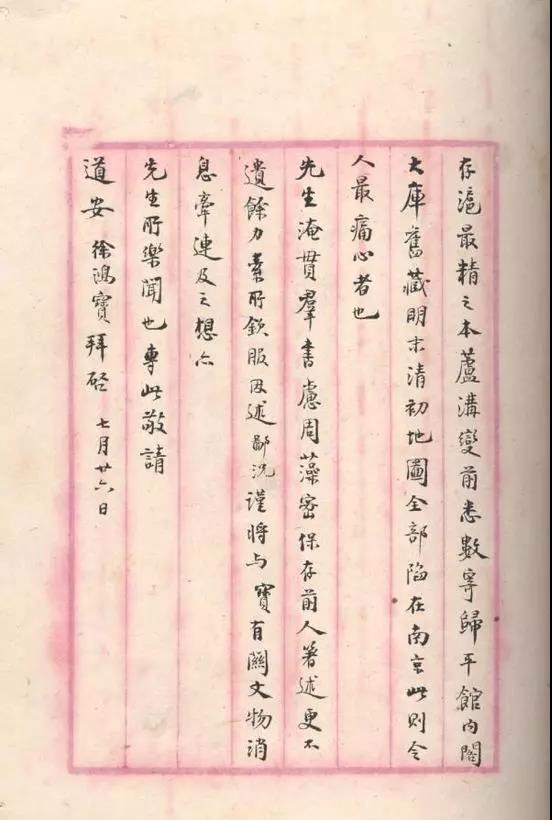 存滬最精之本蘆溝變前悉數寄歸平館內閣
大庫舊藏明末清初地圖全部陷在南京此則令
人最痛心者也
先生淹貫羣書慮周藻密保存前人著述更不
遺餘力素所欽服因述鄙況謹將与寶有關文物消
息牽連及之想亦
先生所樂聞也專此敬請
道安 徐鴻寶拜啓 七月廿六日